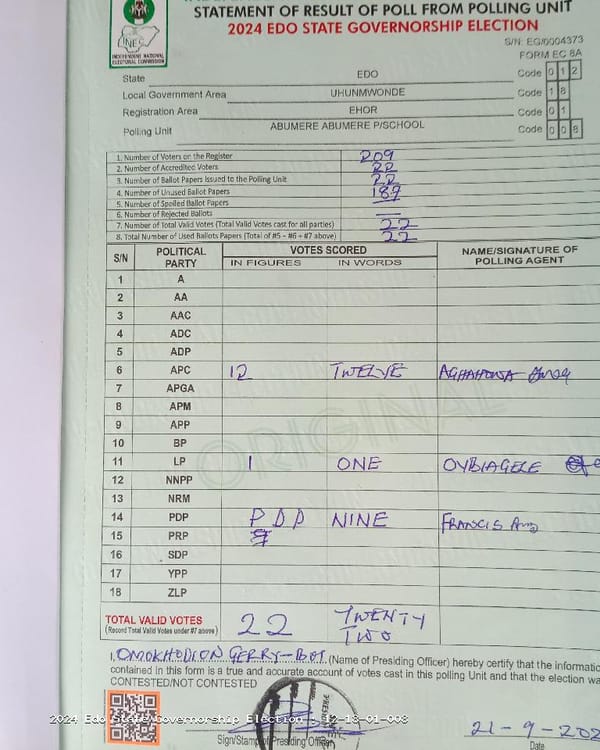 INEC
INDEPENDENT NATIONAL
ELECTORAL COMMISSION
STATEMENT OF RESULT OF POLL FROM POLLING UNIT
2024 EDO STATE GOVERNORSHIP ELECTION
S/N: EG/0004373
FORM EC 8A
State EDO Code 0 1 2
Local Government Area UHUNMWONDE Code 1 8
Registration Area EHOR Code 0 1
Polling Unit ABUMERE ABUMERE P/SCHOOL Code 0 0 8
1. Number of Voters on the Register 209
2. Number of Accredited Voters 22
3. Number of Ballot Papers Issued to the Polling Unit 22
4. Number of Unused Ballot Papers 187
5. Number of Spoiled Ballot Papers —
6. Number of Rejected Ballots —
7. Number of Total Valid Votes (Total Valid Votes cast for all parties) 22
8. Total Number of Used Ballots Papers (Total of #5 - #6 + #7 above) 22
S/N POLITICAL PARTY VOTES SCORED NAME/SIGNATURE OF POLLING AGENT
IN FIGURES IN WORDS
1 A
2 AA
3 AAC
4 ADC
5 ADP
6 APC 12 TWELVE
7 APGA
8 APM
9 APP
10 BP
11 LP 1 ONE
12 NNPP
13 NRM
14 PDP PDP NINE FRANCIS
15 PRP
16 SDP
17 YPP
18 ZLP
ORIGINAL
TOTAL VALID VOTES 22 TWENTY TWO
(Record Total Valid Votes under #7 above)
I, OMOKHODION GERRY-BOT (Name of Presiding Officer) hereby certify that the informatio
contained in this form is a true and accurate account of votes cast in this polling Unit and that the election wa
CONTESTED/NOT CONTESTED
2024 Edo State Governorship Election - 12-18-01-008
Sign/Stamp of Presiding Officer
21-9-202
Date